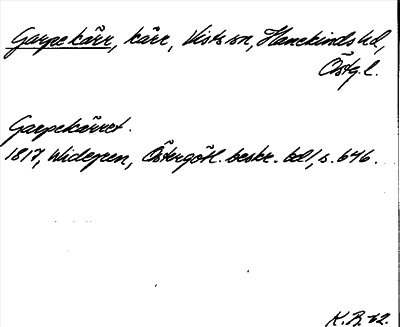 Garpekärr, kärr, Vists sn, Hanekinds hd,
Östg. l.
Garpekärret.
1817, Widegren, Östergötl. beskr. bd 1, s. 646.
K. B. 62.